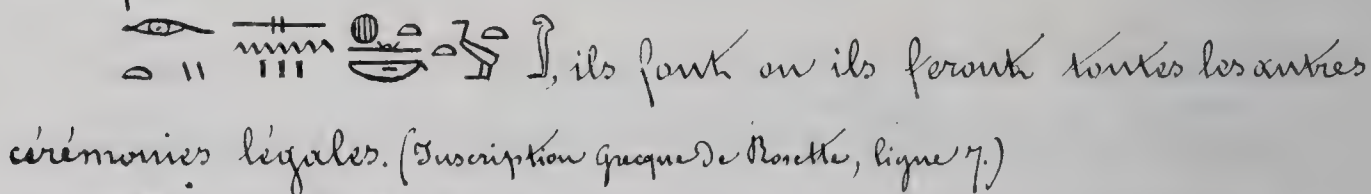 , ils font ou ils feront toutes les autres
cérémonies légales. (Inscription Grecque De Rosette, ligne 7.)